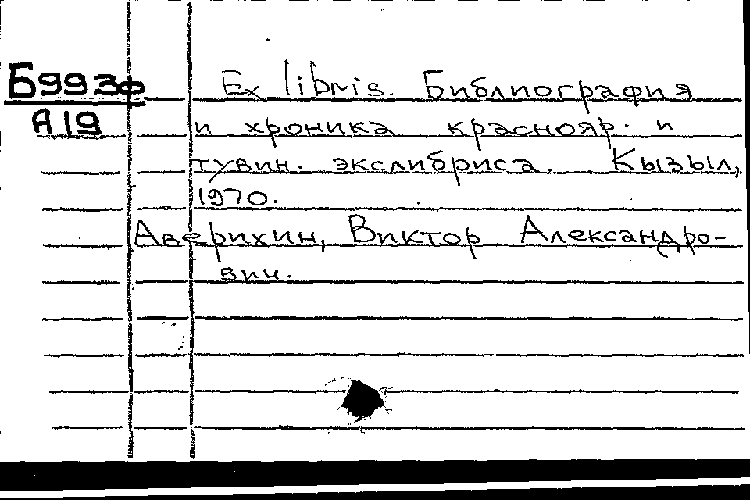 Б993ф Ex libris. Библиография
А19 и хроника краснояр. и
тувин. экслибриса. Кызыл,
1970.
Аверихин, Виктор Александро-
вич.